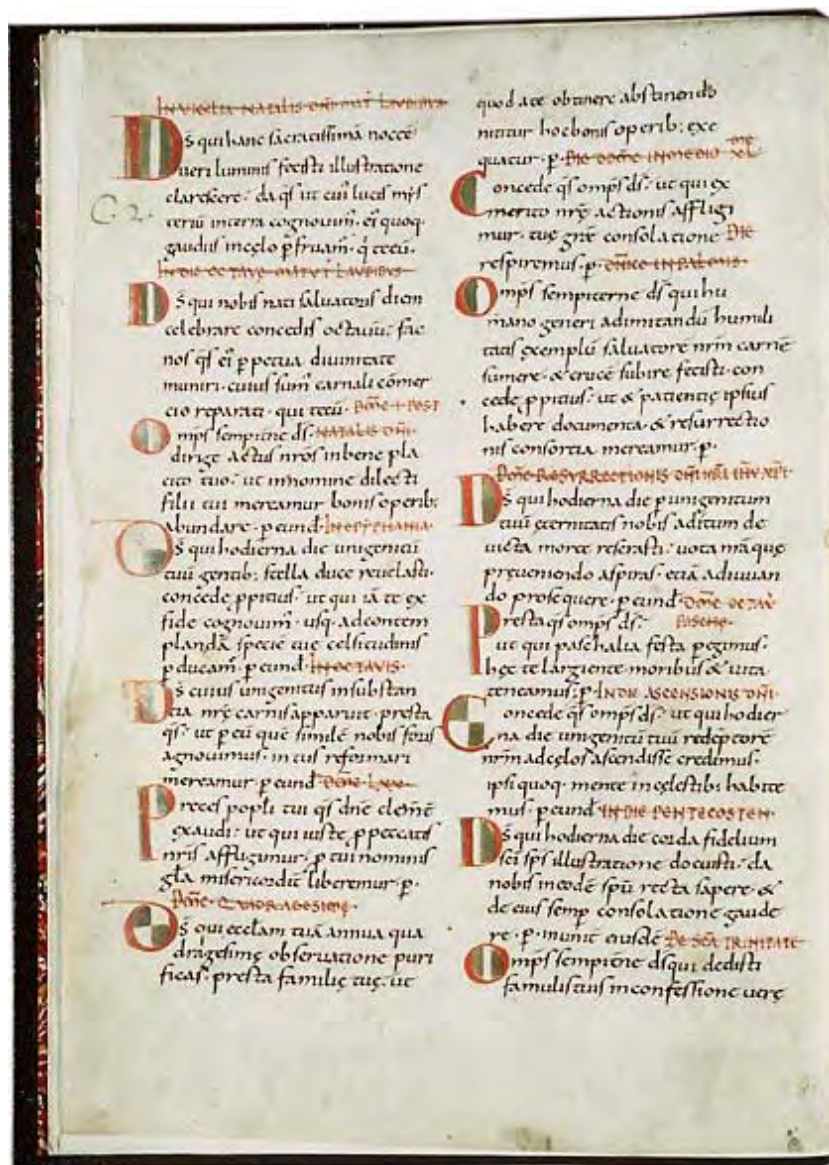 IN VIGILIA NATALIS DNI MAT LAVDIBVS
Dš qui hanc sacratissimā noctē
ueri luminis fecisti illustratione
clarescere· da qs ut cuiꝰ lucis mys
C. 2.
teriū in terra cognouim̄· eiꝰ quoq·
gaudiis in celo p̄fruam̄· q̇ tecū·
IN DIE OCTAVE MATVT LAVDIBVS
Dš qui nobis nati saluatoris diem
celebrare concedis octauū· fac
nos qs eiꝰ ppetua diuinitate
muniri· cuius sumꝰ carnali cōmer
cio reparati· qui tecū· DOME I POST
Omps sempiterne ds· NATALIS DNI·
dirige actus nros in bene pla
cito tuo· ut in nomine dilecti
filii tui mereamur bonis operib;
abundare· p eund· IN EPYPHANIA·
Dš qui hodierna die unigenitū
tuū gentib; stella duce reuelasti·
concede ppitius· ut qui iā te ex
fide cognouim̄· usq· ad contem
plandā speciē tuę celsitudinis
pducam̄· p eund· IN OCTAVIS·
Dš cuius unigenitus in substan
tia nrę carnis apparuit· presta
qs· ut p eū quē similē nobis foris
agnouimus· intus reformari
mereamur p eund· DOME· LXX·
Preces popli tui qs dne clemēt
exaudi· ut qui iuste p peccatis
nris affligimur· p tui nominis
gla misericordit liberemur· p·
DOME· QVADRAGESIME·
Dš qui ecclam tuā annua qua
dragesimę obseruatione puri
ficas· presta familię tuę· ut
quod a te obtinere abstinendo
nititur hoc bonis operib; exe
quatur· p· DIE DOME IN MEDIO XL
Concede qs omps ds· ut qui ex
merito nrę actionis affligi
mur· tuę grę consolatione DIE
respiremus· p· DNICO IN PALMIS·
Omps sempiterne ds qui hu
mano generi ad imitandū humili
tatis exemplū saluatorē nrm carnē
sumere· & crucē subire fecisti· con
cede ppitius· ut & patientię ipsius
habere documenta· & resurrectio
nis consortia mereamur· p·
DOME RESVRRECTIONIS DNI NRI IHV XPI·
Dš qui hodierna die p unigenitum
tuū ęternitatis nobis aditum de
uicta morte reserasti· uota nra quę
pręueniendo aspiras· etiā adiuuan
do prosequere· p eund· DOME OCTAV
Presta qs omps ds· PASCHE·
ut qui paschalia festa pegimus·
hęc te largiente· moribus & uita
teneamus; p· IN DIE ASCENSIONIS DNI
Concede qs omps ds· ut qui hodier
na die unigenitū tuū redeptorē
nrm ad cęlos ascendisse credimus·
ipsi quoq· mente in cęlestib; habite
mus· p eund· IN DIE PENTECOSTEN·
Dš qui hodierna die corda fidelium
sci sps illustratione docuisti· da
nobis in eodē spū recta sapere· &
de eius semp consolatione gaude
re· p· in unit eiusdē DE SCA TRINITATE
Omps sempiterne ds qui dedisti
famulis tuis in confessione uerę